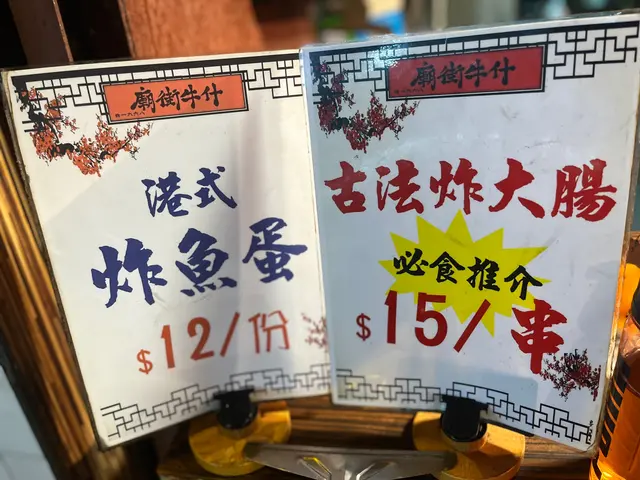 廟街牛什
港式
炸魚蛋
$12/份
廟街牛什
古法炸大腸
必食推介
$15/串